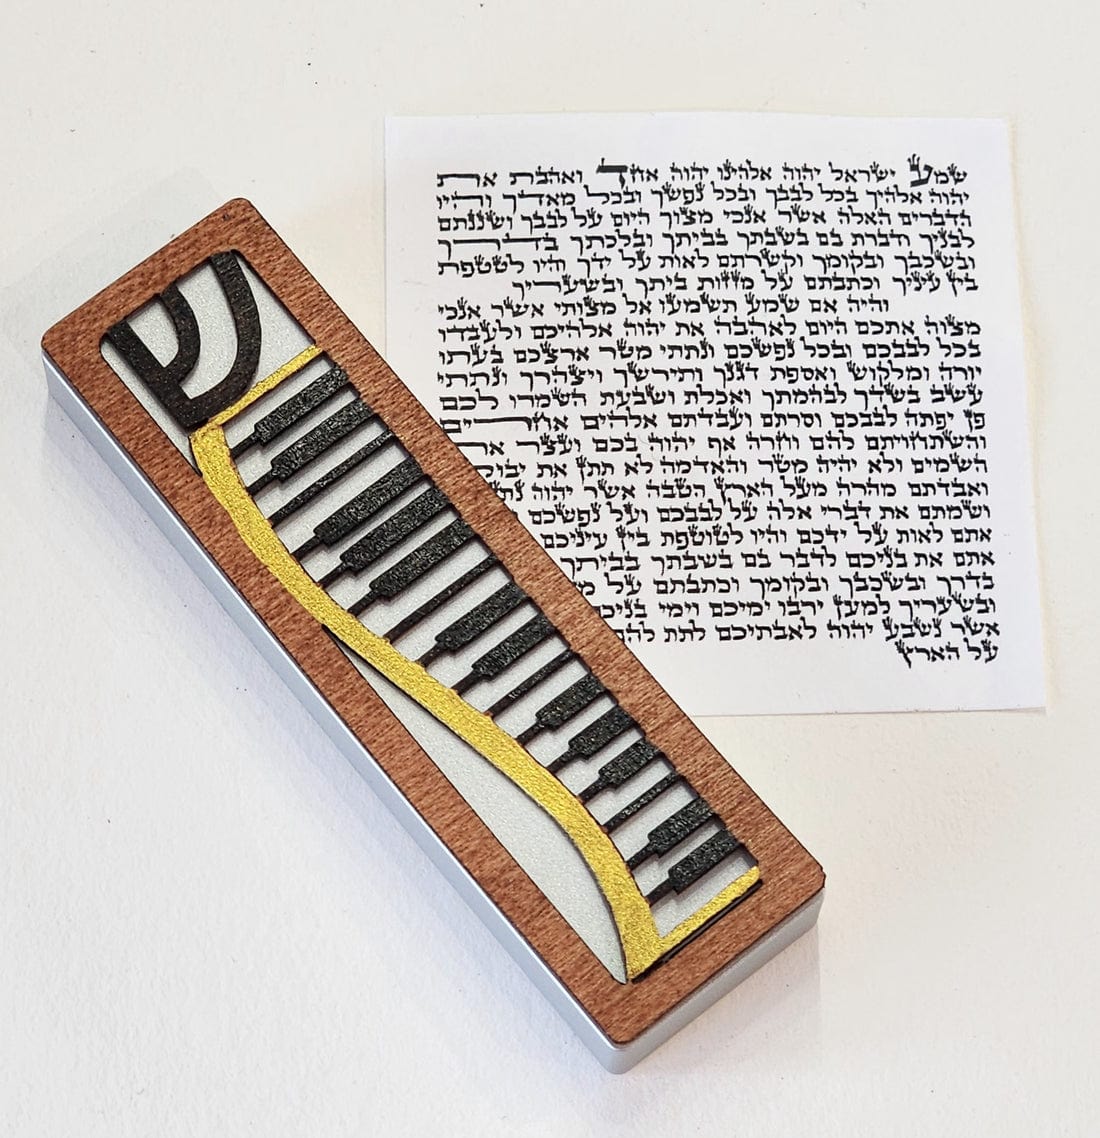 ש
שמע ישראל יהוה אלהינו יהוה אחד ואהבת את
יהוה אלהיך בכל לבבך ובכל נפשך ובכל מאדך והיו
הדברים האלה אשר אנכי מצוך היום על לבבך ושננתם
לבניך ודברת בם בשבתך בביתך ובלכתך בדרך
ובשכבך ובקומך וקשרתם לאות על ידך והיו לטטפת
בין עיניך וכתבתם על מזזות ביתך ובשעריך
והיה אם שמע תשמעו אל מצותי אשר אנכי
מצוה אתכם היום לאהבה את יהוה אלהיכם ולעבדו
בכל לבבכם ובכל נפשכם ונתתי מטר ארצכם בעתו
יורה ומלקוש ואספת דגנך ותירשך ויצהרך ונתתי
עשב בשדך לבהמתך ואכלת ושבעת השמרו לכם
פן יפתה לבבכם וסרתם ועבדתם אלהים אחרים
והשתחויתם להם וחרה אף יהוה בכם ועצר
השמים ולא יהיה מטר והאדמה לא תתן את
ואבדתם מהרה מעל הארץ הטבה אשר יהוה
ושמתם את דברי אלה על לבבכם ועל נפשכם
אתם לאות על ידכם והיו לטוטפת בין עיניכם
אתם את בניכם לדבר בם בשבתך בביתך
בדרך ובשכבך ובקומך וכתבתם על
ובשעריך למען ירבו ימיכם וימי
אשר נשבע יהוה לאבתיכם לתת להם
על הארץ